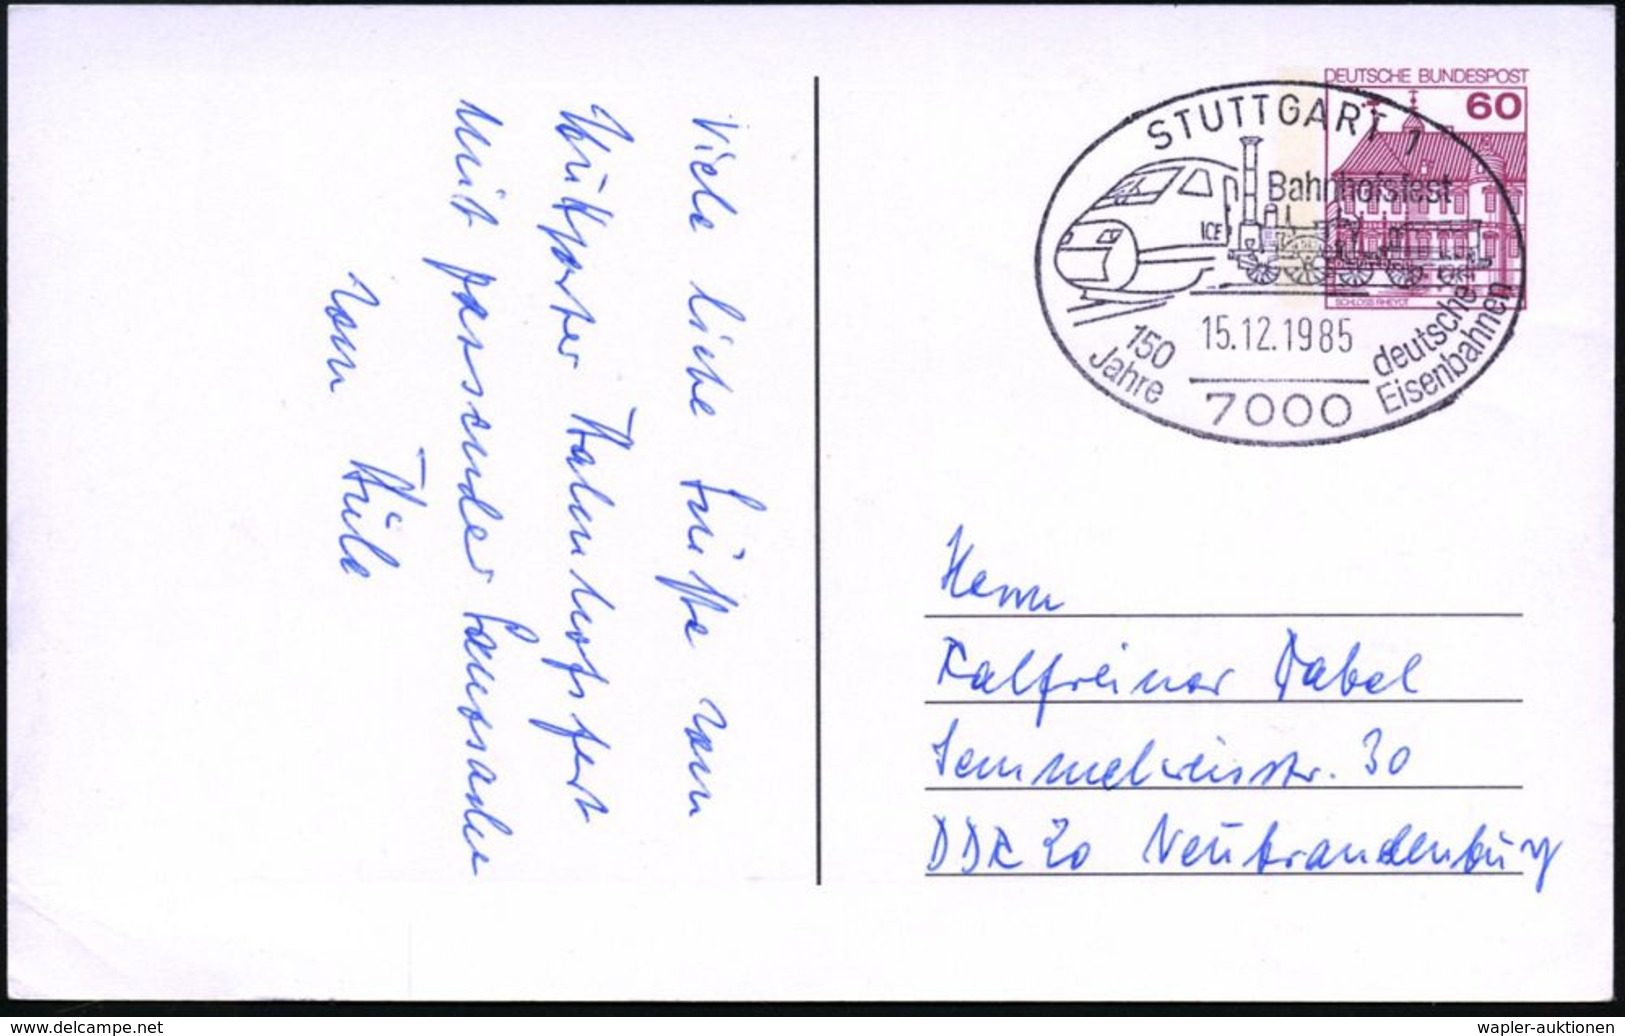 Viele liebe Grüße vom
Stuttgarter Bahnhofsfest
Mit passender Ganzsache
vom
DEUTSCHE BUNDESPOST
60
SCHLOSS RHEYDT
STUTTGART 1
Bahnhofsfest
ICE
15.12.1985
150
Jahre
deutsche
Eisenbahnen
7000
Herrn
Ralfreiner Dabel
Semmelweisstr. 30
DDR 20 Neubrandenburg
www.delcampe.net
wapler-auktionen